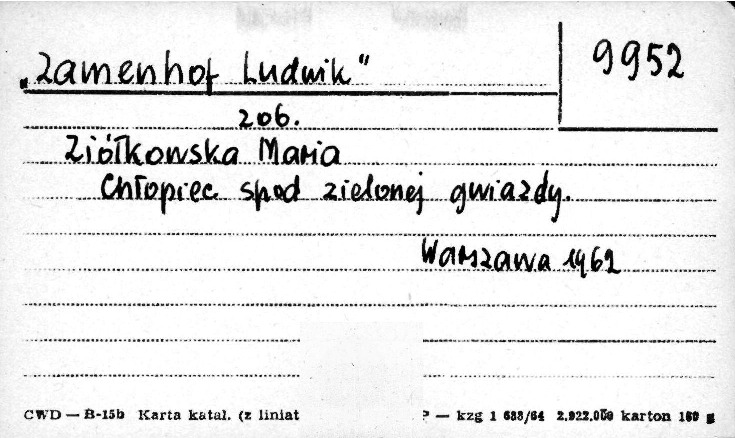 „Zamenhof Ludwik"
9952
zob.
Ziółkowska Maria
Chłopiec spod zielonej gwiazdy.
Warszawa 1962
CWD — B-15b Karta katal. (z liniat
P — kzg 1 688/64 2.922.000 karton 160 g